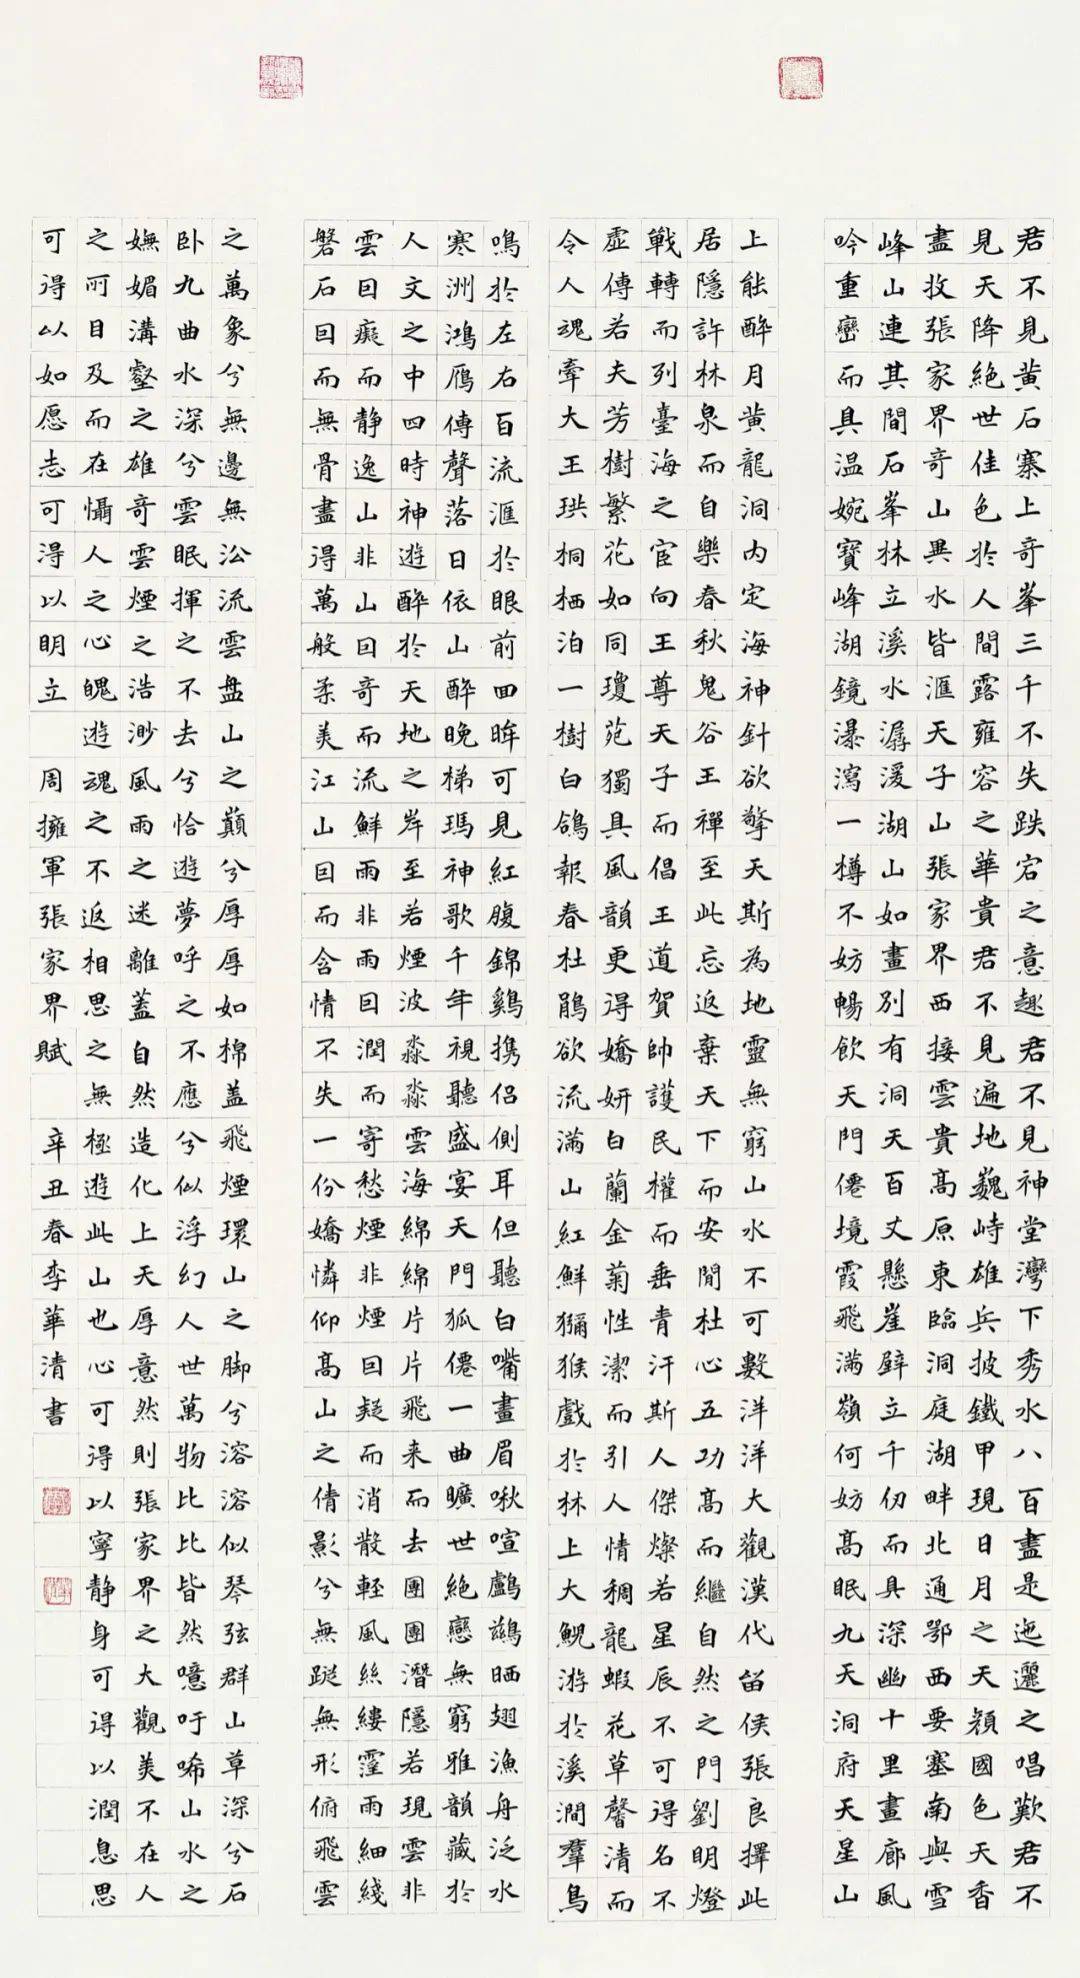 君不見黃石寨上奇峯三千不失跌宕之意趣君不見神堂灣下秀水八百盡是迤邐之唱歎君不
見天降絕世佳色於人間露雍容之華貴君不見遍地巍峙雄兵披鐵甲現日月之天穎國色天香
盡收張家界奇山異水皆滙天子山張家界西接雲貴高原東臨洞庭湖畔北通鄂西要塞南與雪
峰山連其間石峯林立溪水潺湲湖山如畫別有洞天百丈懸崖壁立千仞而具深幽十里畫廊風
吟重巒而具温婉寶峰湖鏡瀑瀉一樽不妨暢飲天門僊境霞飛滿嶺何妨高眠九天洞府天星山
上能醉月黃龍洞内定海神針欲擎天斯為地靈無窮山水不可數洋洋大觀漢代留侯張良擇此
居隱許林泉而自樂春秋鬼谷王禪至此忘返棄天下而安閒杜心五功高而繼自然之門劉明燈
戰轉而列臺海之宦向王尊天子而倡王道賀帥護民權而垂青汗斯人傑燦若星辰不可得名不
虛傳若夫芳樹繁花如同瓊苑獨具風韻更得嬌妍白蘭金菊性潔而引人情稠龍蝦花草馨清而
令人魂牽大王珙桐栖泊一樹白鴿報春杜鵑欲流滿山紅鮮獼猴戲於林上大鯢游於溪澗羣鳥
鳴於左右百流滙於眼前回眸可見紅腹錦鷄携侶側耳但聽白嘴畫眉啾喧鸕鷀晒翅漁舟泛水
寒洲鴻雁傳聲落日依山醉晚梯瑪神歌千年視聽盛宴天門狐僊一曲曠世絕戀無窮雅韻藏於
人文之中四時神遊醉於天地之岸至若煙波淼淼雲海綿綿片片飛来而去團團潛隱若現雲非
雲曰癡而静逸山非山曰奇而流鮮雨非雨曰潤而寄愁煙非煙曰疑而消散輕風絲縷霪雨細綫
磐石曰而無骨盡得萬般柔美江山曰而含情不失一份嬌憐仰高山之倩影兮無蹤無形俯飛雲
之萬象兮無邊無沿流雲盤山之巔兮厚厚如棉盖飛煙環山之脚兮溶溶似琴弦群山草深兮石
卧九曲水深兮雲眠揮之不去兮恰遊夢呼之不應兮似浮幻人世萬物比比皆然噫吁唏山水之
嫵媚溝壑之雄奇雲煙之浩渺風雨之迷離蓋自然造化上天厚意然則張家界之大觀美不在人
之所目及而在懾人之心魄遊魂之不返相思之無極遊此山也心可得以寧静身可得以潤息思
可得以如愿志可得以明立 周擁軍張家界賦 辛丑春李華清書